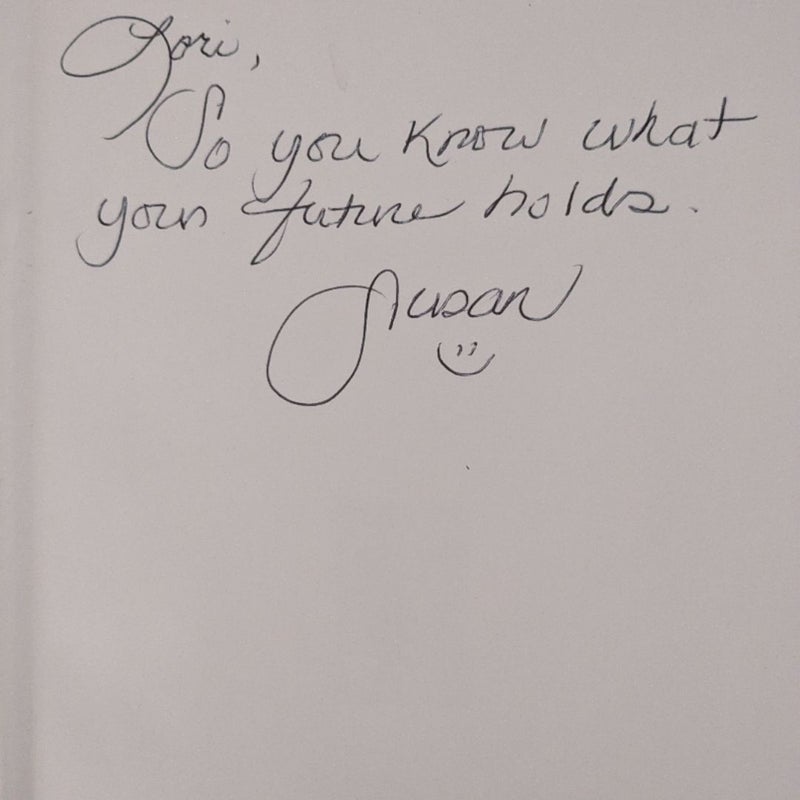 Lori,
So you know what
your future holds.
Susan